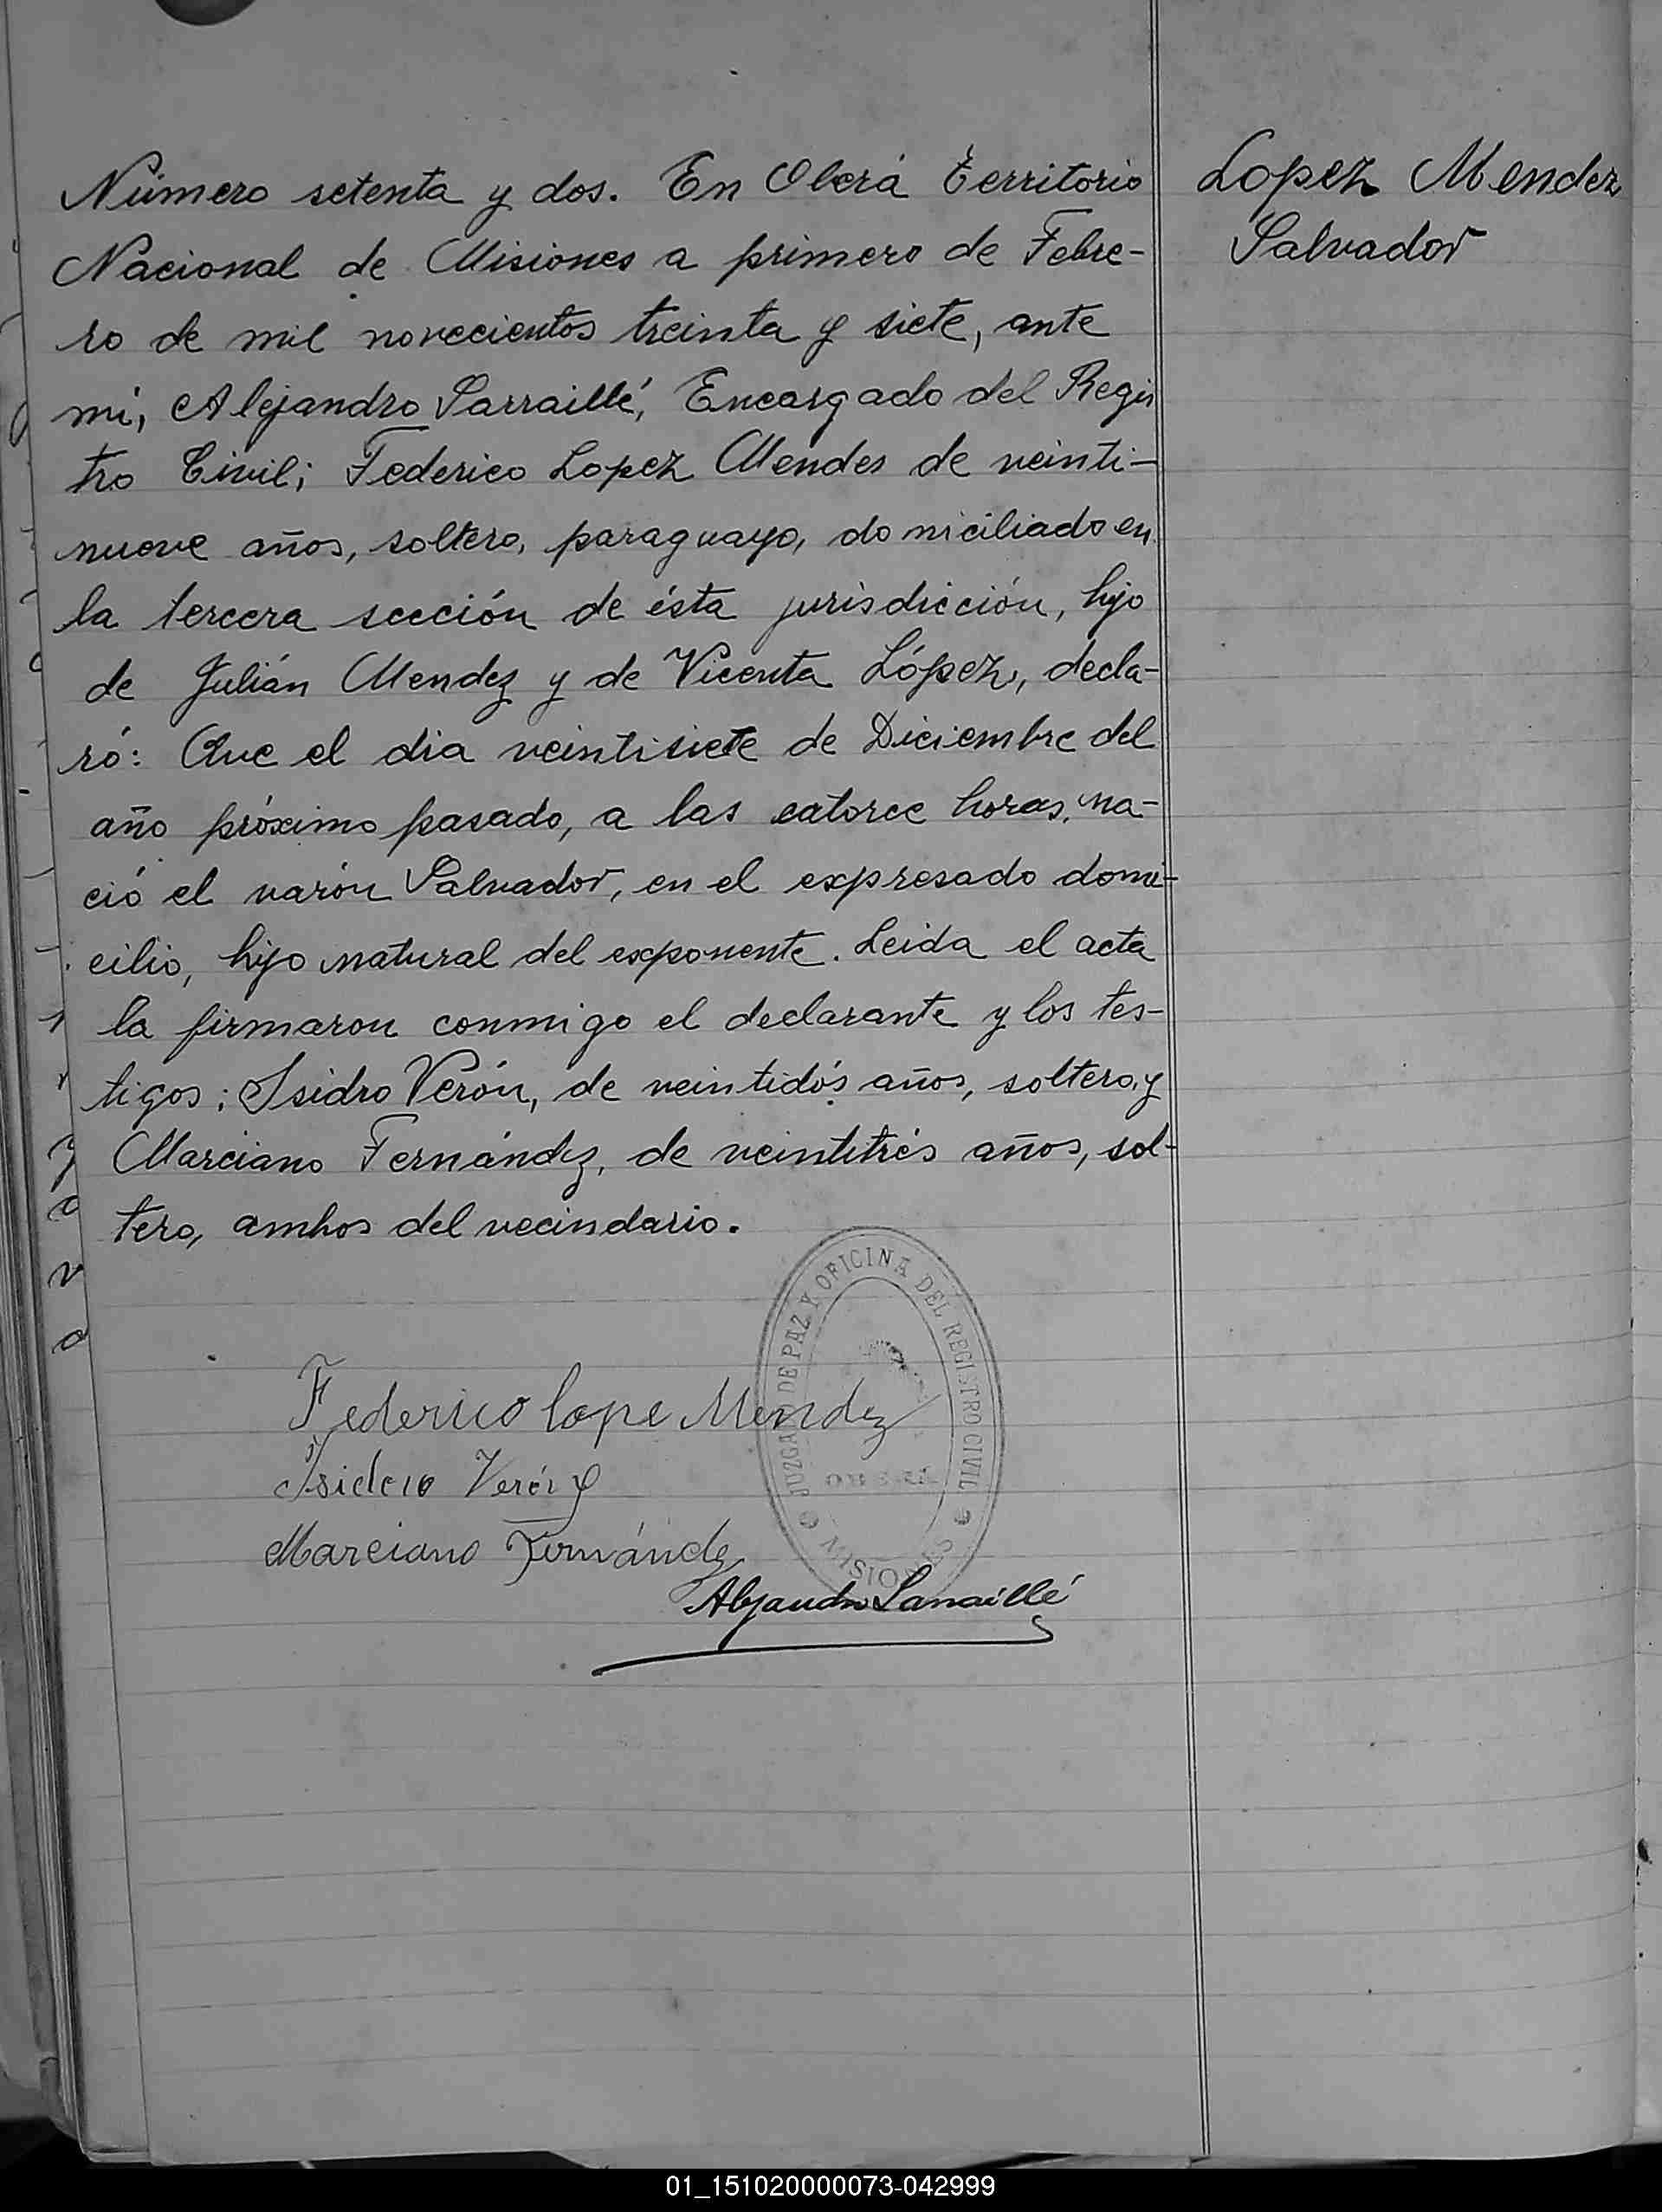 Número setenta y dos. En Oberá territorio
Nacional de Misiones a primero de Febre-
ro de mil novecientos treinta y siete, ante
mí, Alejandro Larraillé, Encargado del Regis
tro Civil; Federico Lopez Mendes de veinti-
nueve años, soltero, paraguayo, domiciliado en
la tercera sección de ésta jurisdicción, hijo
de Julián Mendez y de Vicenta López, decla-
ró: Que el dia veintisiete de Diciembre del
año próximo pasado, a las catorce horas, na-
ció el varón Salvador, en el expresado domi-
cilio, hijo natural del exponente. Leida el acta
la firmaron conmigo el declarante y los tes-
tigos; Isidro Verón, de veintidós años, soltero, y
Marciano Fernández, de veintitrés años, sol-
tero, ambos del vecindario.
Lopez Mendez
Salvador
JUZGADO DE PAZ Y OFICINA DEL REGISTRO CIVIL
OBERA
MISIONES
Federico lope Mendez
Isidero Verón
Marciano Fernández
Alejandro Larraillé
01_151020000073-042999